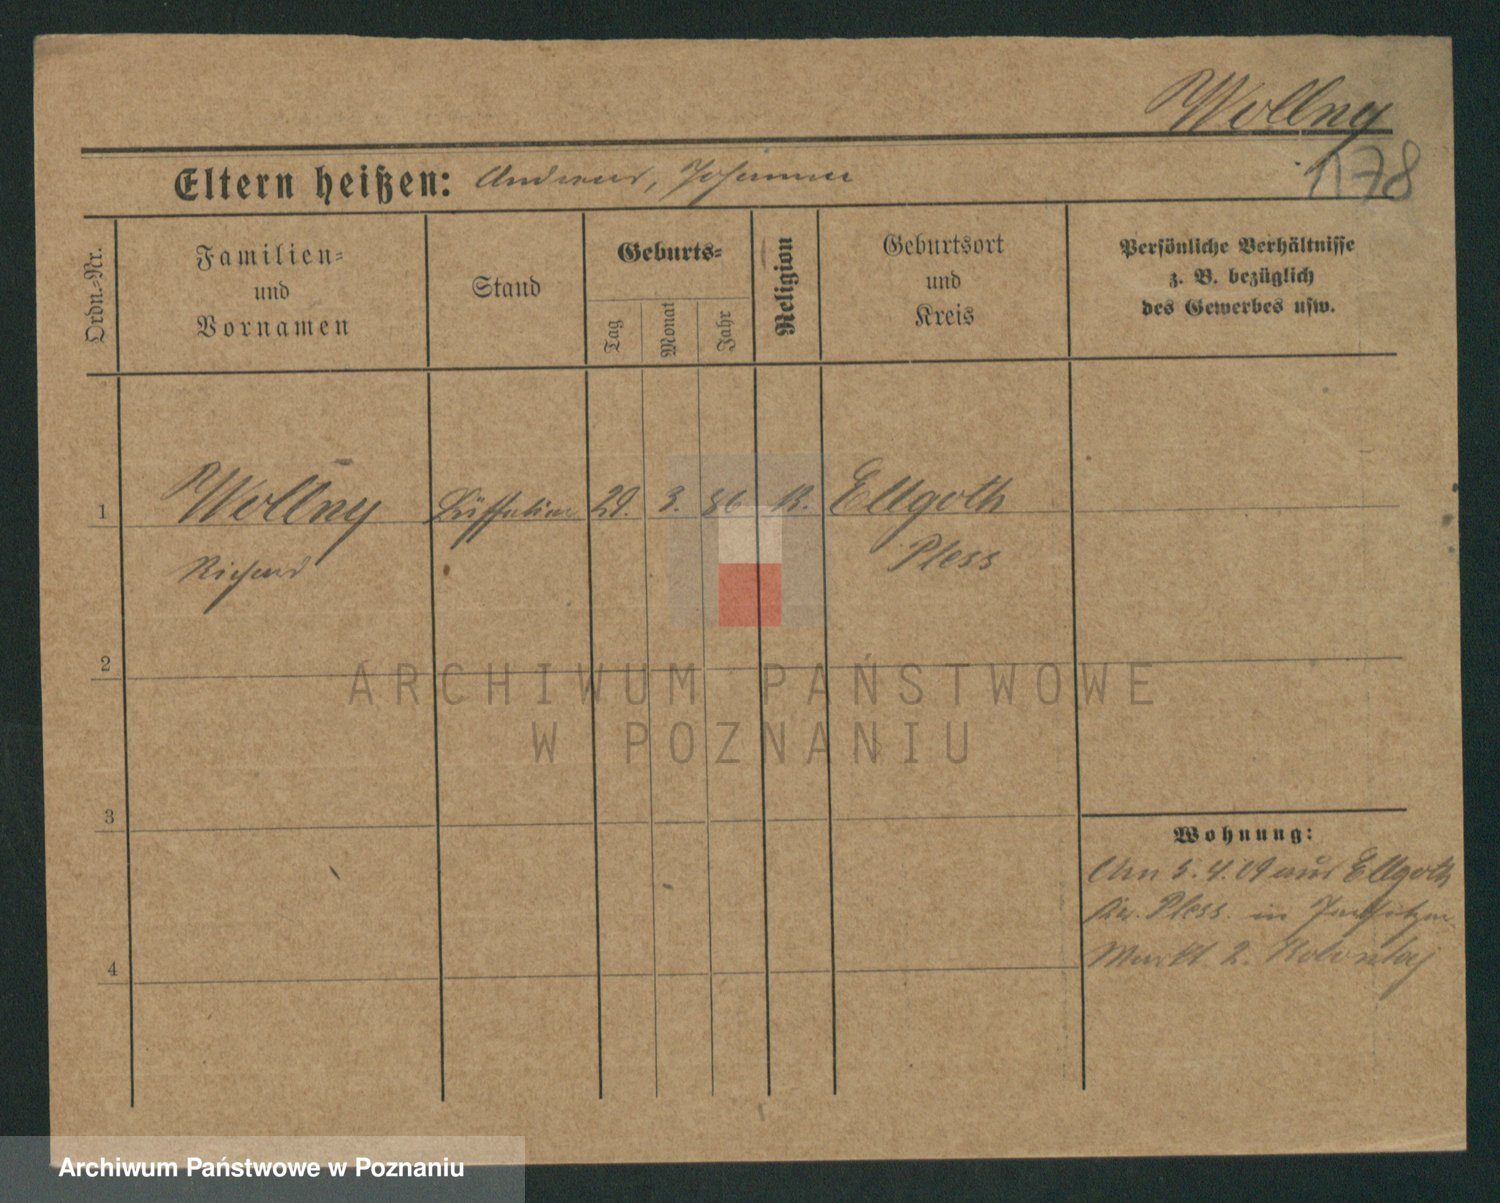 Wollny
178
Eltern heißen: Andreas, Johanna
Ordn.-Nr.
Familien-
und
Vornamen
Stand
Geburts-
Tag
Monat
Jahr
Religion
Geburtsort
und
Kreis
Persönliche Verhältnisse
z. B. bezüglich
des Gewerbes usw.
1 Wollny 29. 3. 86 K. Ellgoth
Richard Pless
2
3
4
Wohnung:
Am 5.4.09 aus Ellgoth
Pless in
Markt 2.
ARCHIWUM PAŃSTWOWE
W POZNANIU
Archiwum Państwowe w Poznaniu